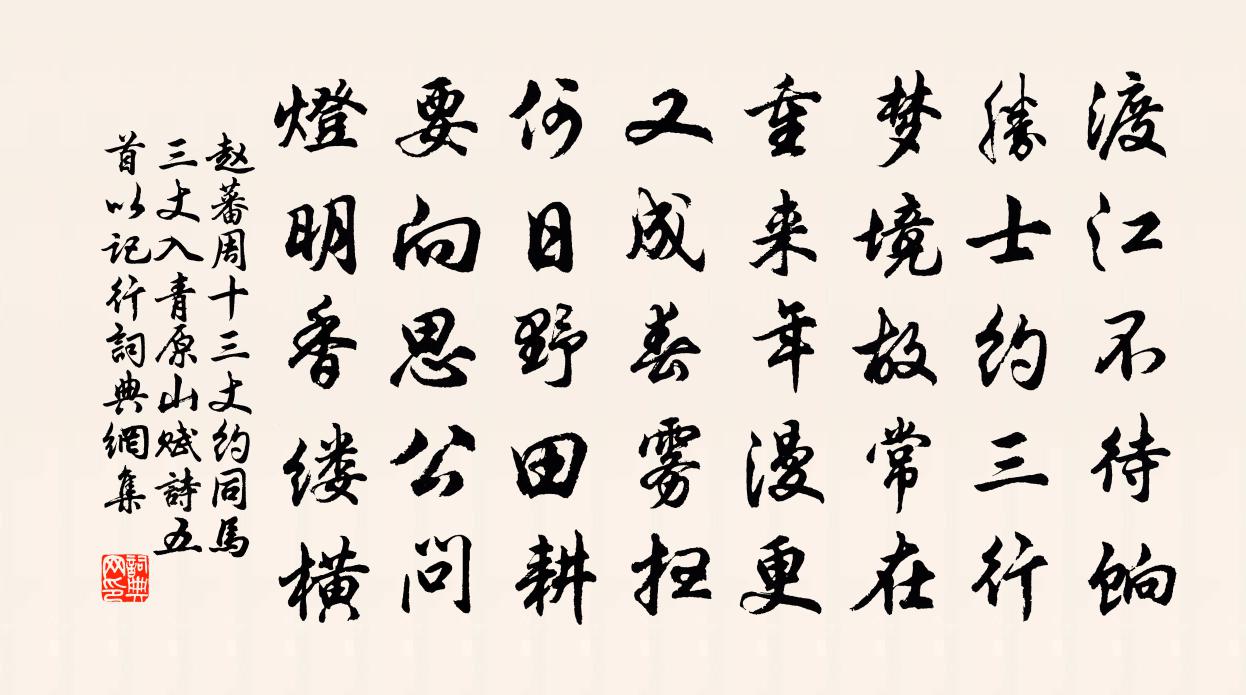 渡江不待餉
勝士约三行
梦境故常在
重来年漫更
又成春雾狂
何日野田耕
要向思公问
燈明香缕横
赵蕃周十三丈约同馬
三丈入青原山赋詩五
首以记行詞典網集
詞典网印